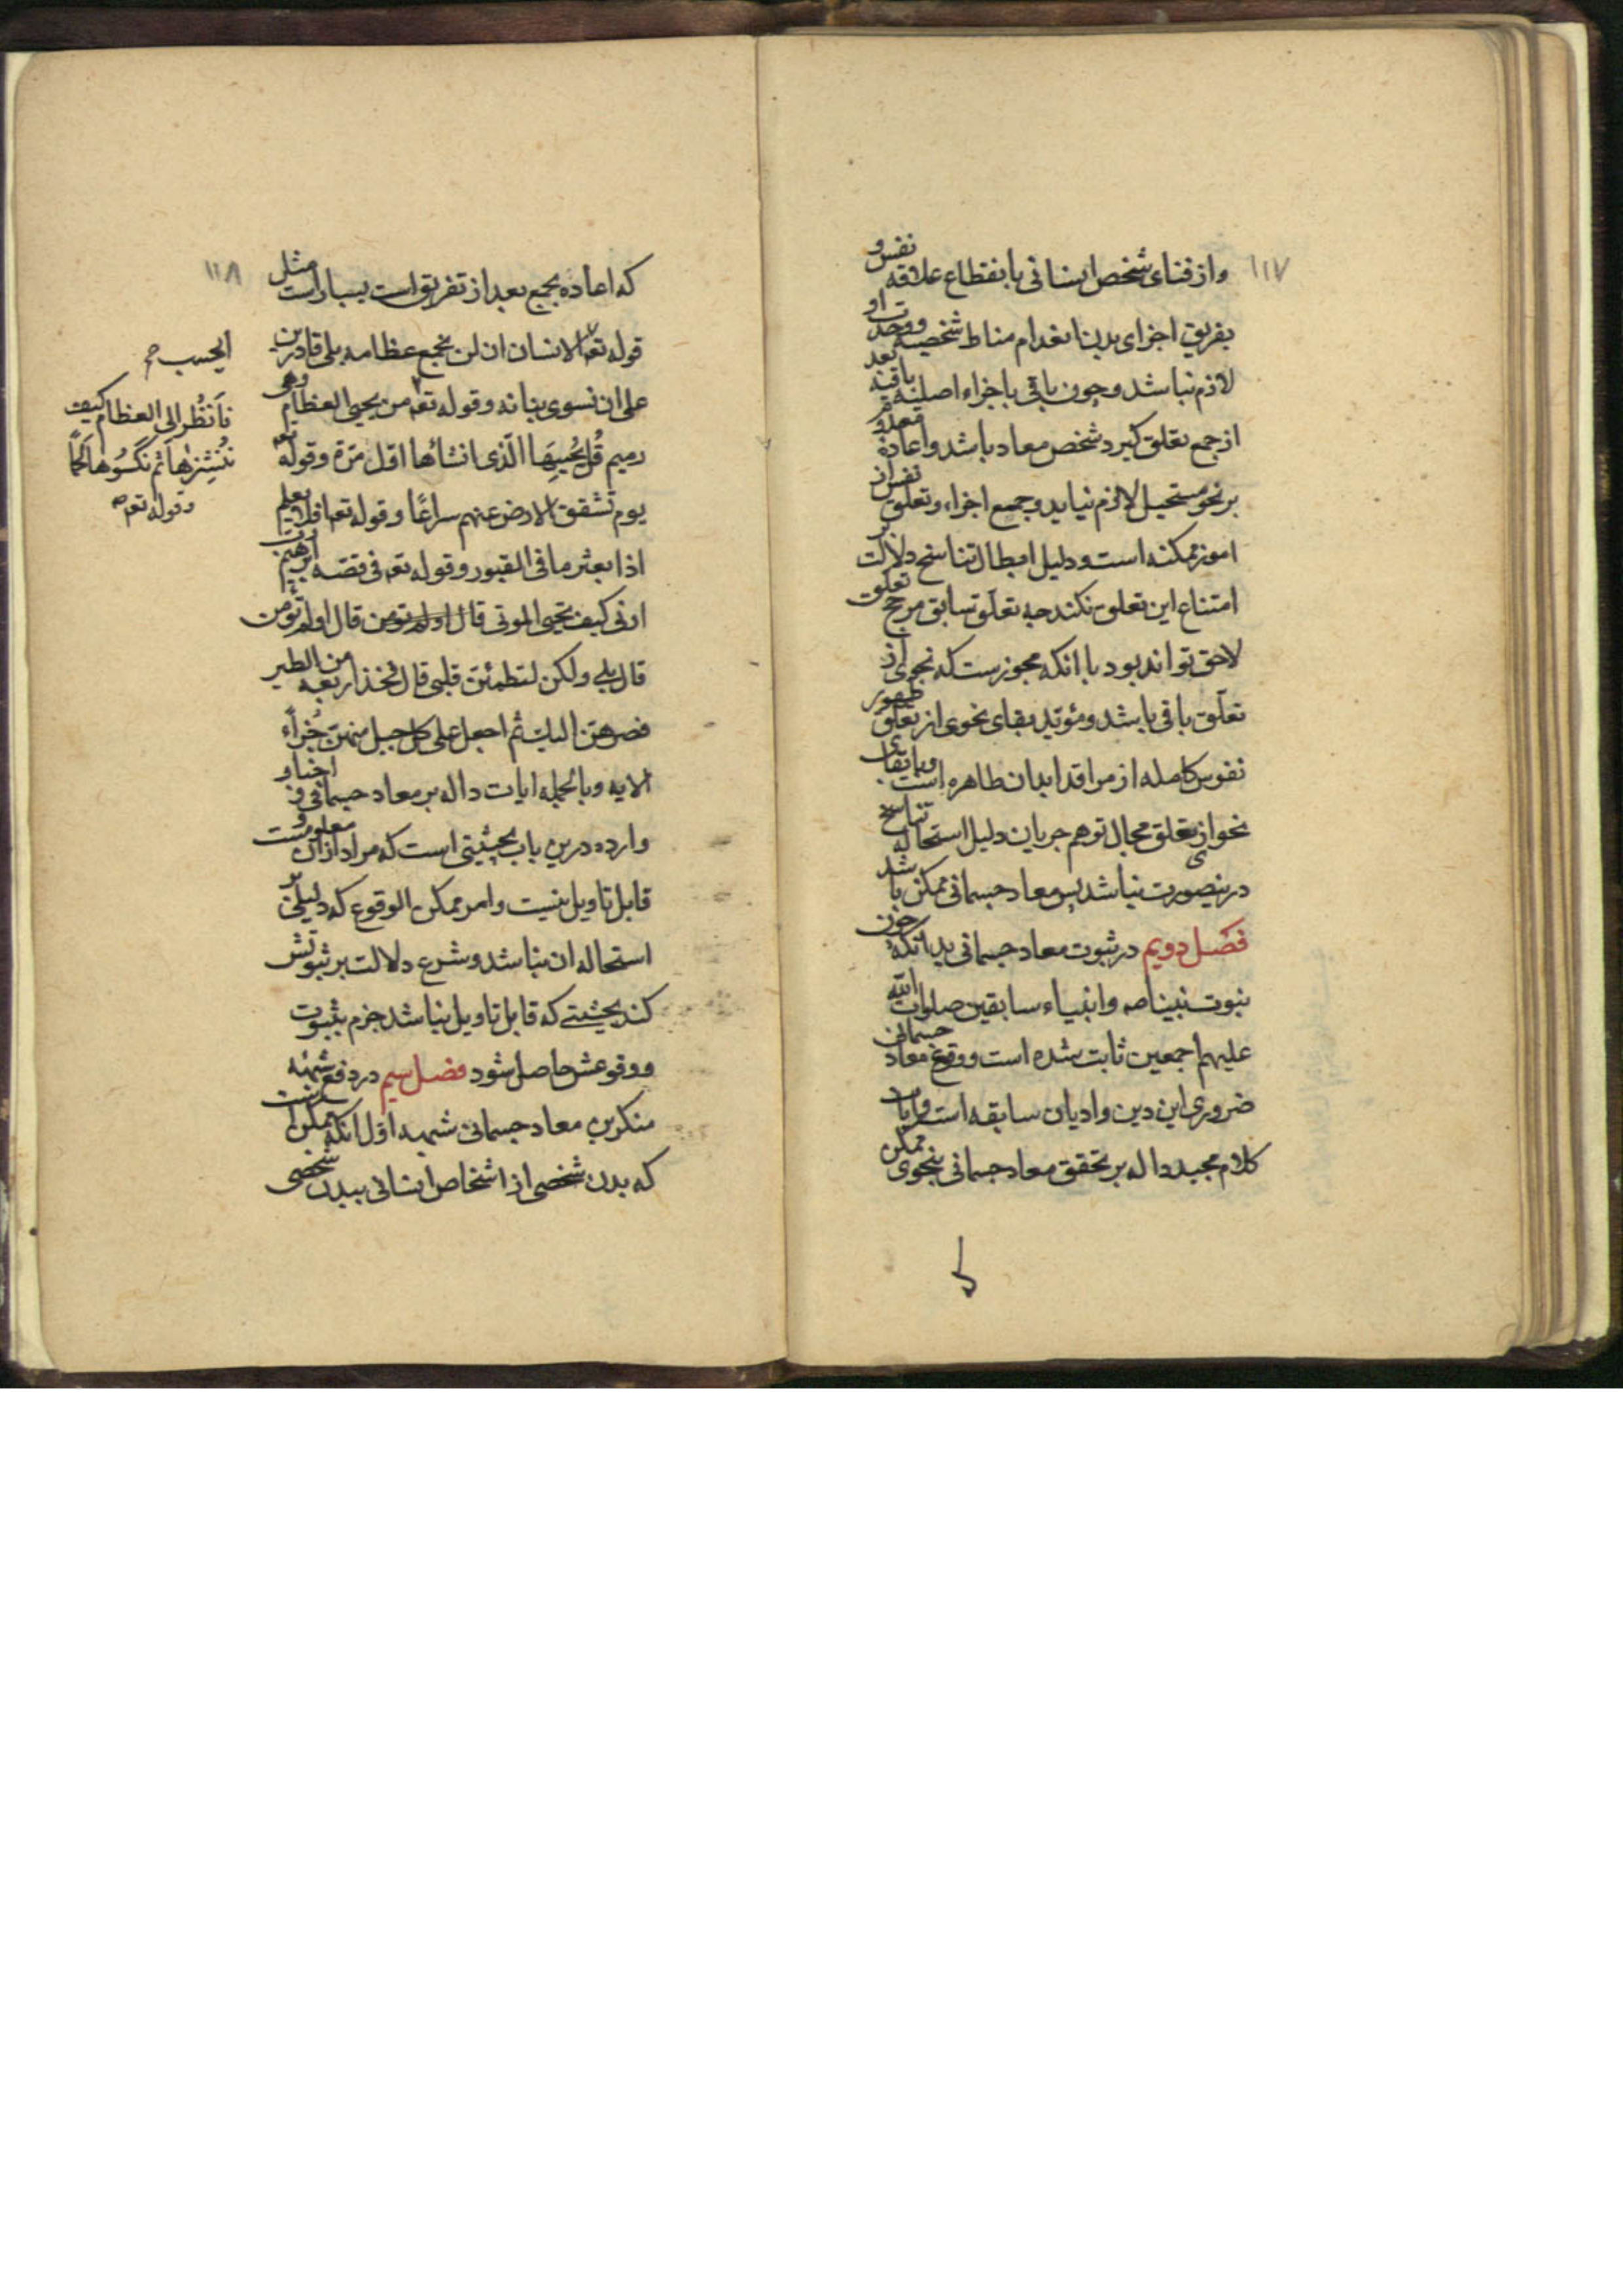 ۱۱۷
واز فنای شخص انسانی بانقطاع علاقه نفس و
تفریق اجزای بدن انعدام مناط شخصیه و وحدت او
لازم نباشد و چون باقی باجزاء اصلیه باقیه بعد
از جمع تعلق کیرد شخص معاد باشد و اعادهٔ معدوم
بر نحو مستحیل لازم نیاید و جمیع اجزاء و تعلق نفس از
امور ممکنه است و دلیل ابطال تناسخ دلالت بر
امتناع این تعلق نکند چه تعلق سابق مرجح تعلق
لاحق تواند بود با انکه مجوز است که نحوی از
تعلق باقی باشد و مؤید بقای نحوی از تعلق ظهور
نفوس کامله از مراقد ابدان طاهره است و با بقای
نحو از تعلق مجال توهم جریان دلیل استحاله تناسخ
درینصورت نباشد پس معاد جسمانی ممکن باشد
فصل دویم در ثبوت معاد جسمانی بدانکه چون
نبوت نبینا صه و انبیاء سابقین صلوات الله
علیهم اجمعین ثابت شده است و وقوع معاد جسمانی
ضروری این دین و ادیان سابقه است و ایات
کلام مجید داله بر تحقق معاد جسمانی بنحوی ممکن
۱۱۸
که اعاده بجمع بعد از تفریق است بسیار است مثل
قوله تعه الانسان ان لن نجمع عظامه بلی قادرین
علی ان نسوی بنانه و قوله تعه من یحیی العظام وهی
رمیم قُل یُحْییِهَا الّذی انشاٴها اوّل مرّة و قوله تعه
یوم تشقق الارض عنهم سراعًا و قوله تعه افلا یعلم
اذا بعثر ما فی القبور و قوله تعه فی قصّه ابرهیم رب
ارنی کیف تحیی الموتی قال اولم تومن قال اولم تؤمن
قال بلی ولکن لتطمئنّ قلبی قال فخذ اربعه من الطیر
فصرهنّ الیك ثم اجعل علی کل جبل منهنّ جُزءً
الایه و بالجمله ایات داله بر معاد جسمانی و اخبار
وارده درین باب بحیثیتی است که مراد ازان معلومست و
قابل تاویل نیست و امر ممکن الوقوع که دلیلی بر
استحاله ان نباشد و شرع دلالت بر ثبوتش
کند بحیثیتے که قابل تاویل نباشد جزم بثبوت
و وقوعش حاصل شود فصل سیم در دفع شبهه
منکرین معاد جسمانی شبهه اوّل انکه ممکن است
که بدن شخصی از اشخاص انسانی ببدن شخصی
ایحسب صح
فَانْظُر الی العظام کیف
نُنْشِزهٰا ثم نَکسُوهٰا لَحمًا
و قوله تعه صح